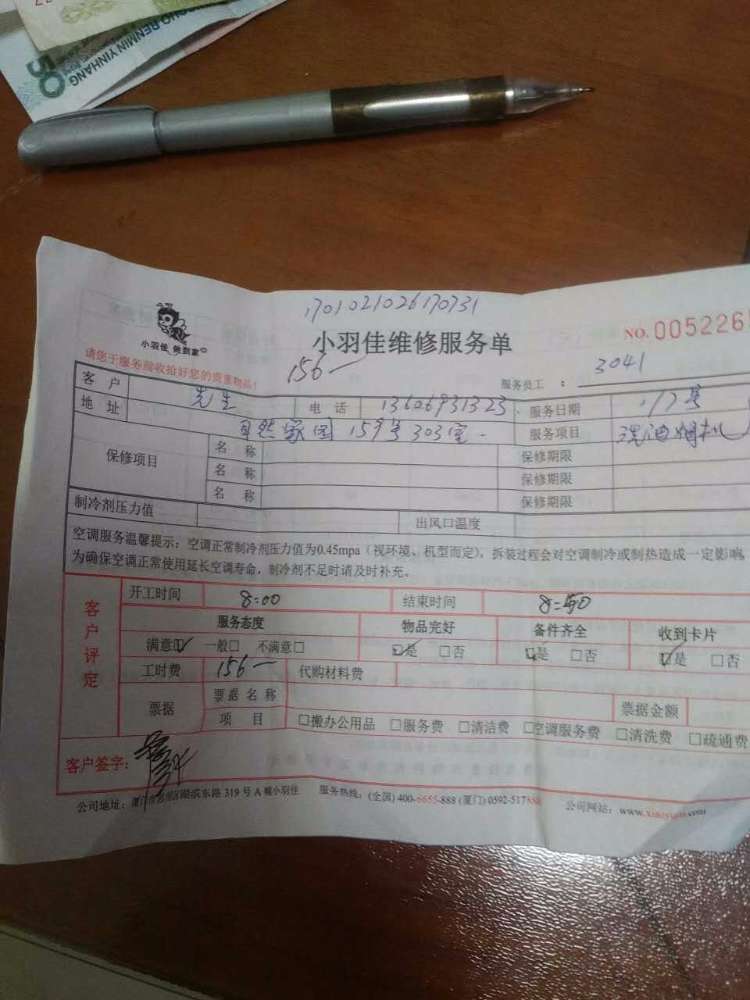 50
1701021026170731
小羽佳 做到家
小羽佳维修服务单
NO. 005226
请您于服务前收拾好您的贵重物品!
156一
服务员工 : 3041
客户 先生 电话 13606931323 服务日期
地址 自然家园 159号 303室. 服务项目 洗油烟机
保修项目 名称 保修期限
名称 保修期限
名称 保修期限
制冷剂压力值 出风口温度
空调服务温馨提示:空调正常制冷剂压力值为0.45mpa(视环境、机型而定),拆装过程会对空调制冷或制热造成一定影响,
为确保空调正常使用延长空调寿命,制冷剂不足时请及时补充。
客户评定
开工时间 8:00 结束时间
服务态度 物品完好 备件齐全 收到卡片
满意☑ 一般□ 不满意□ ☑是 □否 ☑是 □否 ☑是 □否
工时费 156一 代购材料费
票据 票据名称 票据金额
项目 □搬办公用品 □服务费 □清洁费 □空调服务费 □清洗费 □疏通费
客户签字:
公司地址: 湖滨东路 319 号 A 幢小羽佳 服务热线: (全国) 400-6655-888 (厦门) 0592-517 公司网站: www.